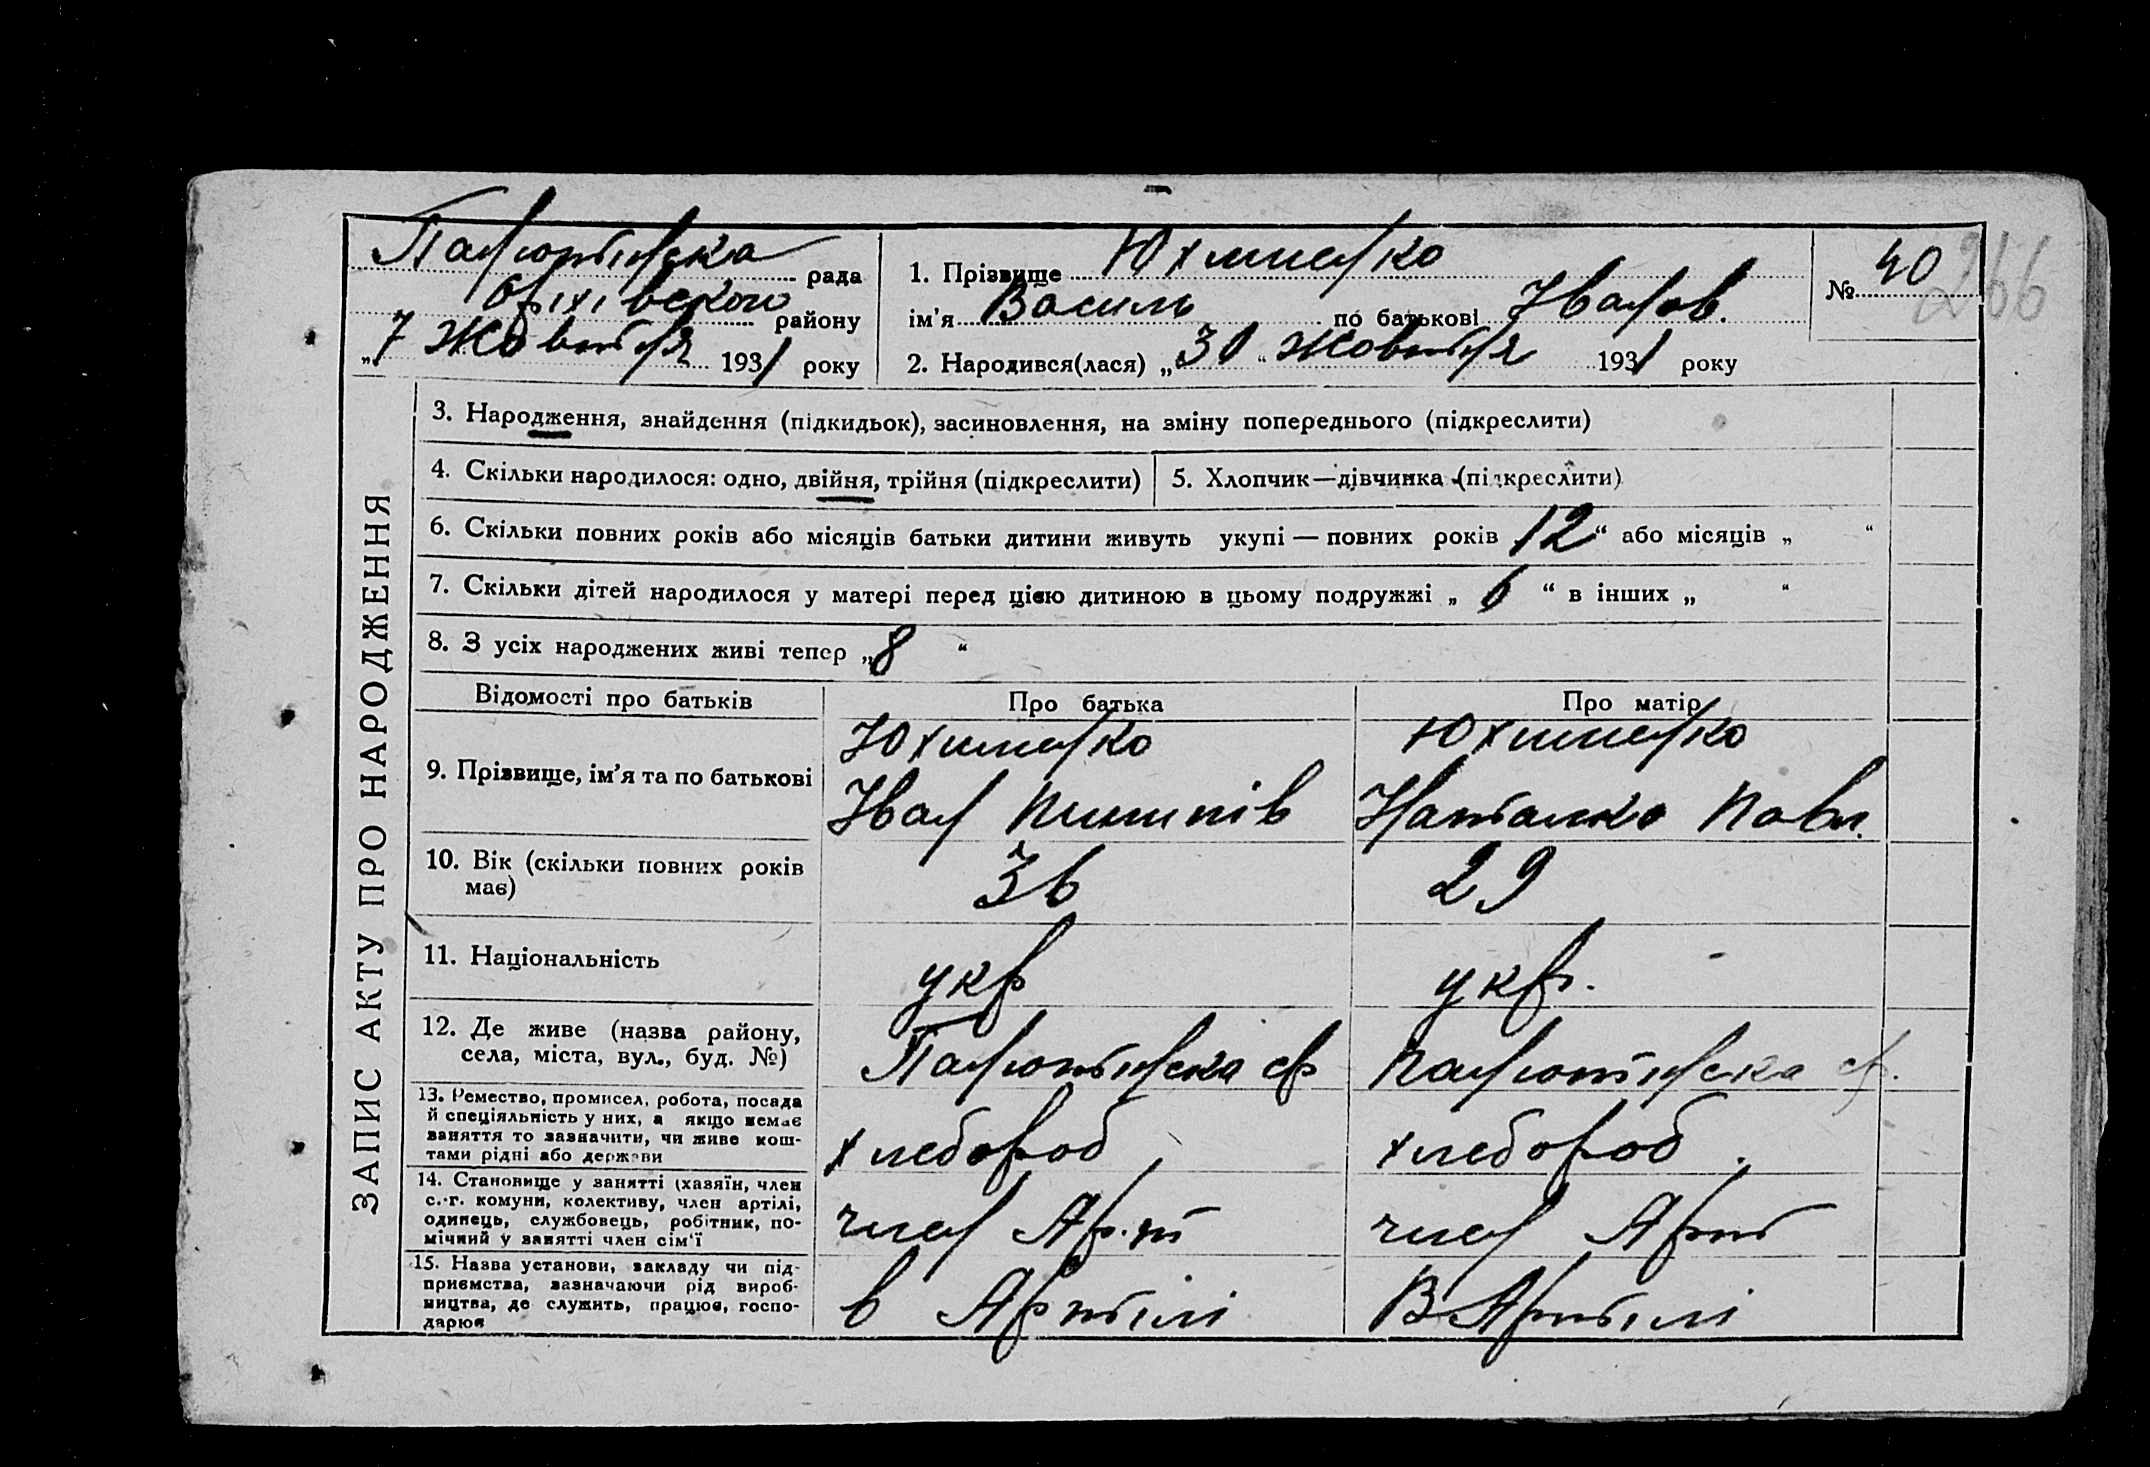 Панютинська рада
Оріхівського району
„7 Жовтня 1931 року
1. Прізвище Юхименко
ім'я Василь по батькові Іванов.
2. Народився(лася) „30“ Жовтня 1931 року
№ 40
266
ЗАПИС АКТУ ПРО НАРОДЖЕННЯ
3. Народження, знайдення (підкидьок), засиновлення, на зміну попереднього (підкреслити)
4. Скільки народилося: одно, двійня, трійня (підкреслити)
5. Хлопчик—дівчинка (підкреслити)
6. Скільки повних років або місяців батьки дитини живуть укупі — повних років 12“ або місяців „ “
7. Скільки дітей народилося у матері перед цією дитиною в цьому подружжі „ 6 “ в інших „ “
8. З усіх народжених живі тепер „8 “
Відомості про батьків Про батька Про матір
9. Прізвище, ім'я та по батькові
Юхименко
Іван Пилипів
Юхименко
Наталка Павл.
10. Вік (скільки повних років
має)
36
29
11. Національність
укр
укр.
12. Де живе (назва району,
села, міста, вул., буд. №)
Панютинська ср
Панютинська ср.
13. Ремество, промисел, робота, посада
й спеціяльність у них, а якщо немає
заняття то зазначити, чи живе кош-
тами рідні або держави
хлебороб
хлебороб.
14. Становище у занятті (хазяїн, член
с.-г. комуни, колективу, член артілі,
одинець, службовець, робітник, по-
мічний у занятті член сім'ї
член Ар.т
член Арт
15. Назва установи, закладу чи під-
приємства, зазначаючи рід вироб-
ництва, де служить, працює, госпо-
дарює
в Артілі
В Артілі